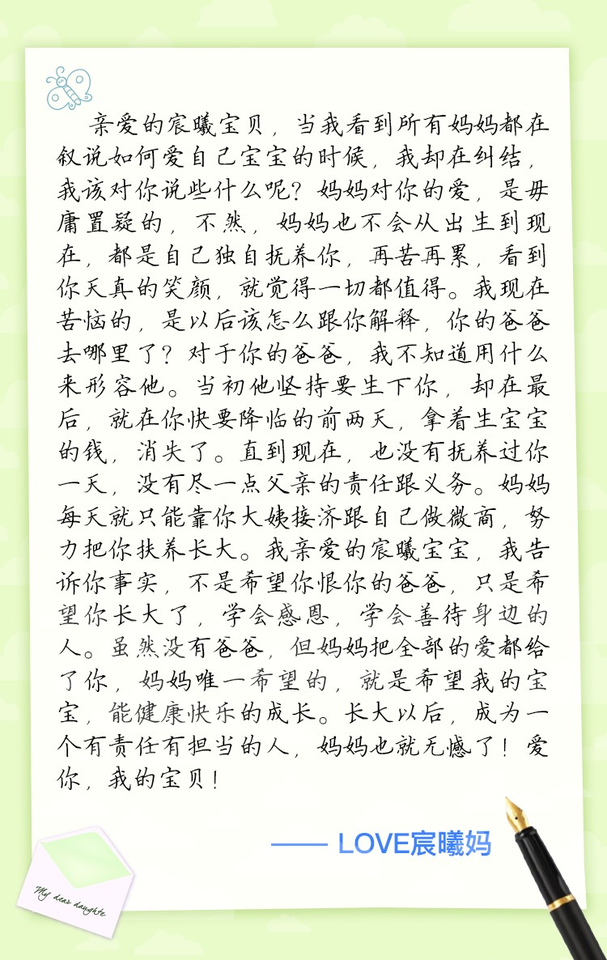 亲爱的宸曦宝贝，当我看到所有妈妈都在
叙说如何爱自己宝宝的时候，我却在纠结，
我该对你说些什么呢？妈妈对你的爱，是毋
庸置疑的，不然，妈妈也不会从出生到现
在，都是自己独自抚养你，再苦再累，看到
你天真的笑颜，就觉得一切都值得。我现在
苦恼的，是以后该怎么跟你解释，你的爸爸
去哪里了？对于你的爸爸，我不知道用什么
来形容他。当初他坚持要生下你，却在最
后，就在你快要降临的前两天，拿着生宝宝
的钱，消失了。直到现在，也没有抚养过你
一天，没有尽一点父亲的责任跟义务。妈妈
每天就只能靠你大姨接济跟自己做微商，努
力把你扶养长大。我亲爱的宸曦宝宝，我告
诉你事实，不是希望你恨你的爸爸，只是希
望你长大了，学会感恩，学会善待身边的
人。虽然没有爸爸，但妈妈把全部的爱都给
了你，妈妈唯一希望的，就是希望我的宝
宝，能健康快乐的成长。长大以后，成为一
个有责任有担当的人，妈妈也就无憾了！爱
你，我的宝贝！
—— LOVE宸曦妈
My dear daughte